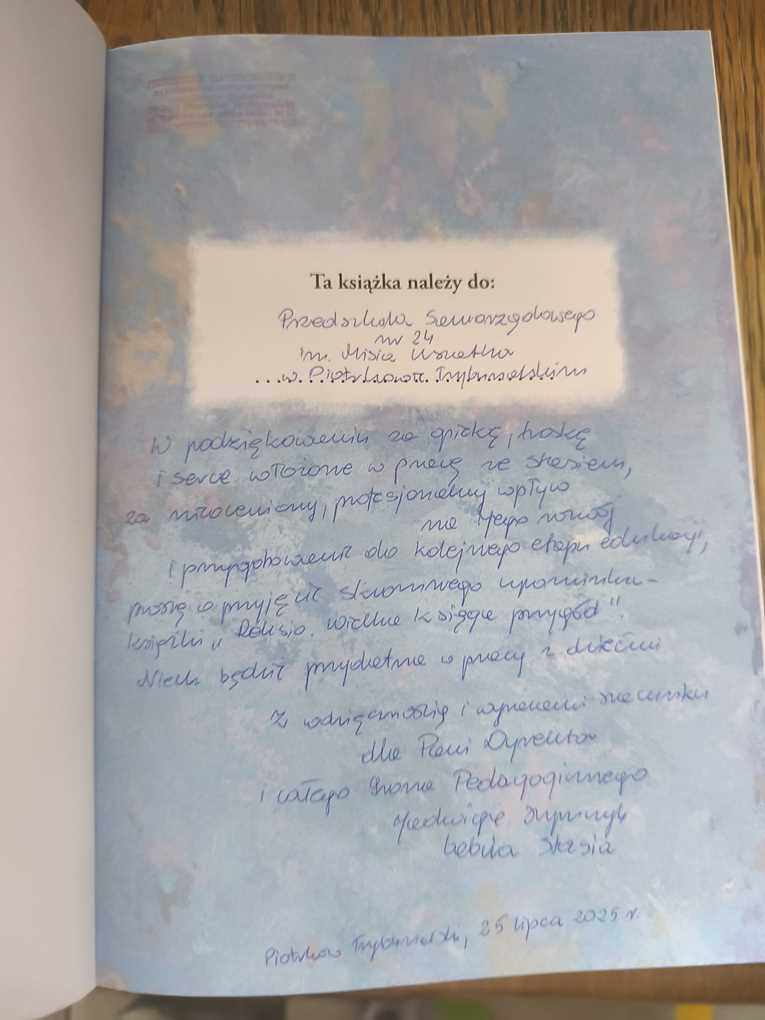 Ta książka należy do:
Przedszkola Samorządowego
nr 24
im. Misia Uszatka
w Piotrkowie Trybunalskim
W podziękowaniu za opiekę, troskę
i serce włożone w pracę ze Stasiem,
za nieoceniony, profesjonalny wpływ
na Jego rozwój
i przygotowanie do kolejnego etapu edukacji,
proszę o przyjęcie skromnego upominku -
książki „Reksio. Wielka księga przygód".
Niech będzie przydatna w pracy z dziećmi
Z wdzięcznością i wyrazami szacunku
dla Pani Dyrektor
i całego Grona Pedagogicznego
Jadwiga
babcia Stasia
Piotrków Trybunalski, 25 lipca 2025 r.